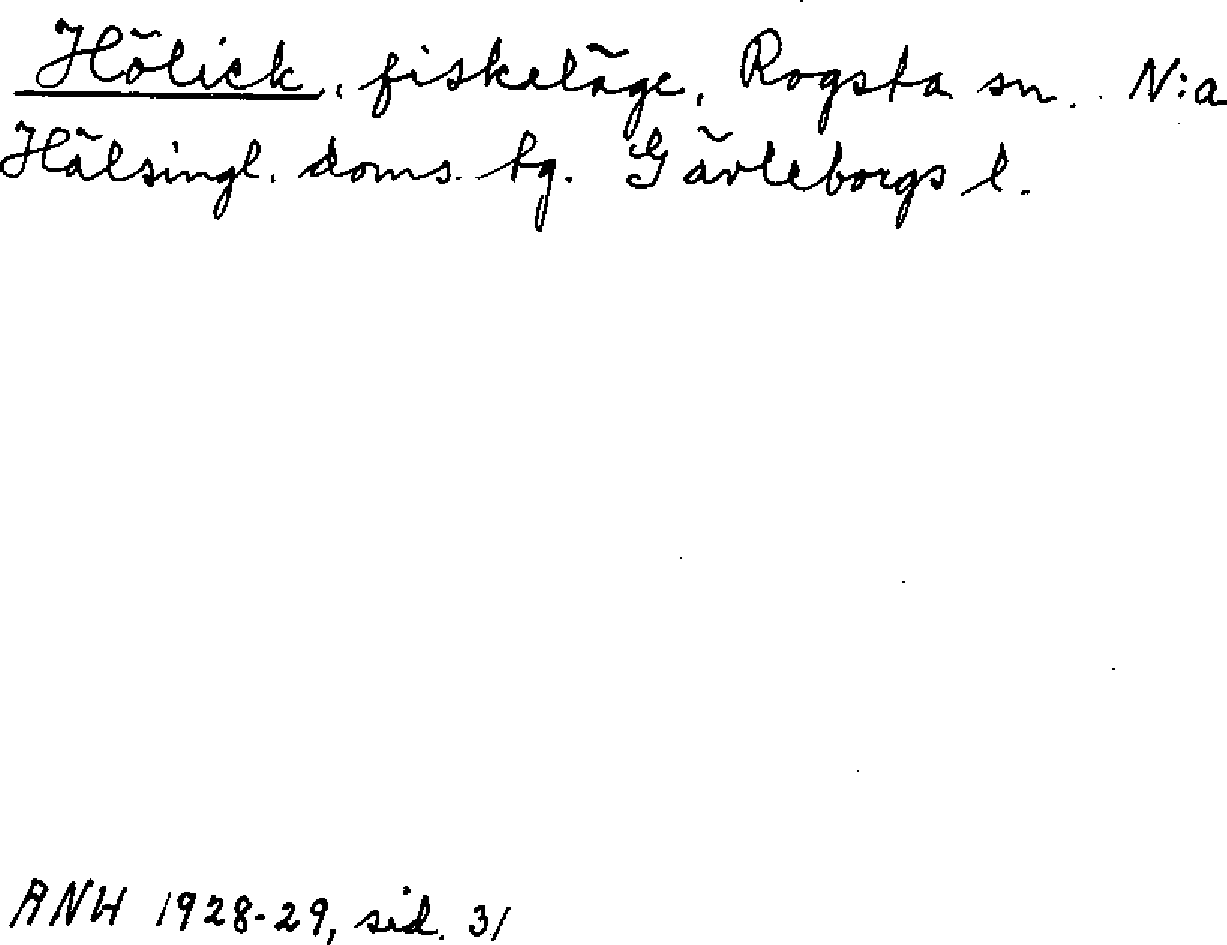 Hölick, fiskeläge, Rogsta sn. N:a
Hälsingl. doms. tg. Gävleborgs l.
RNH 1928-29, sid. 31